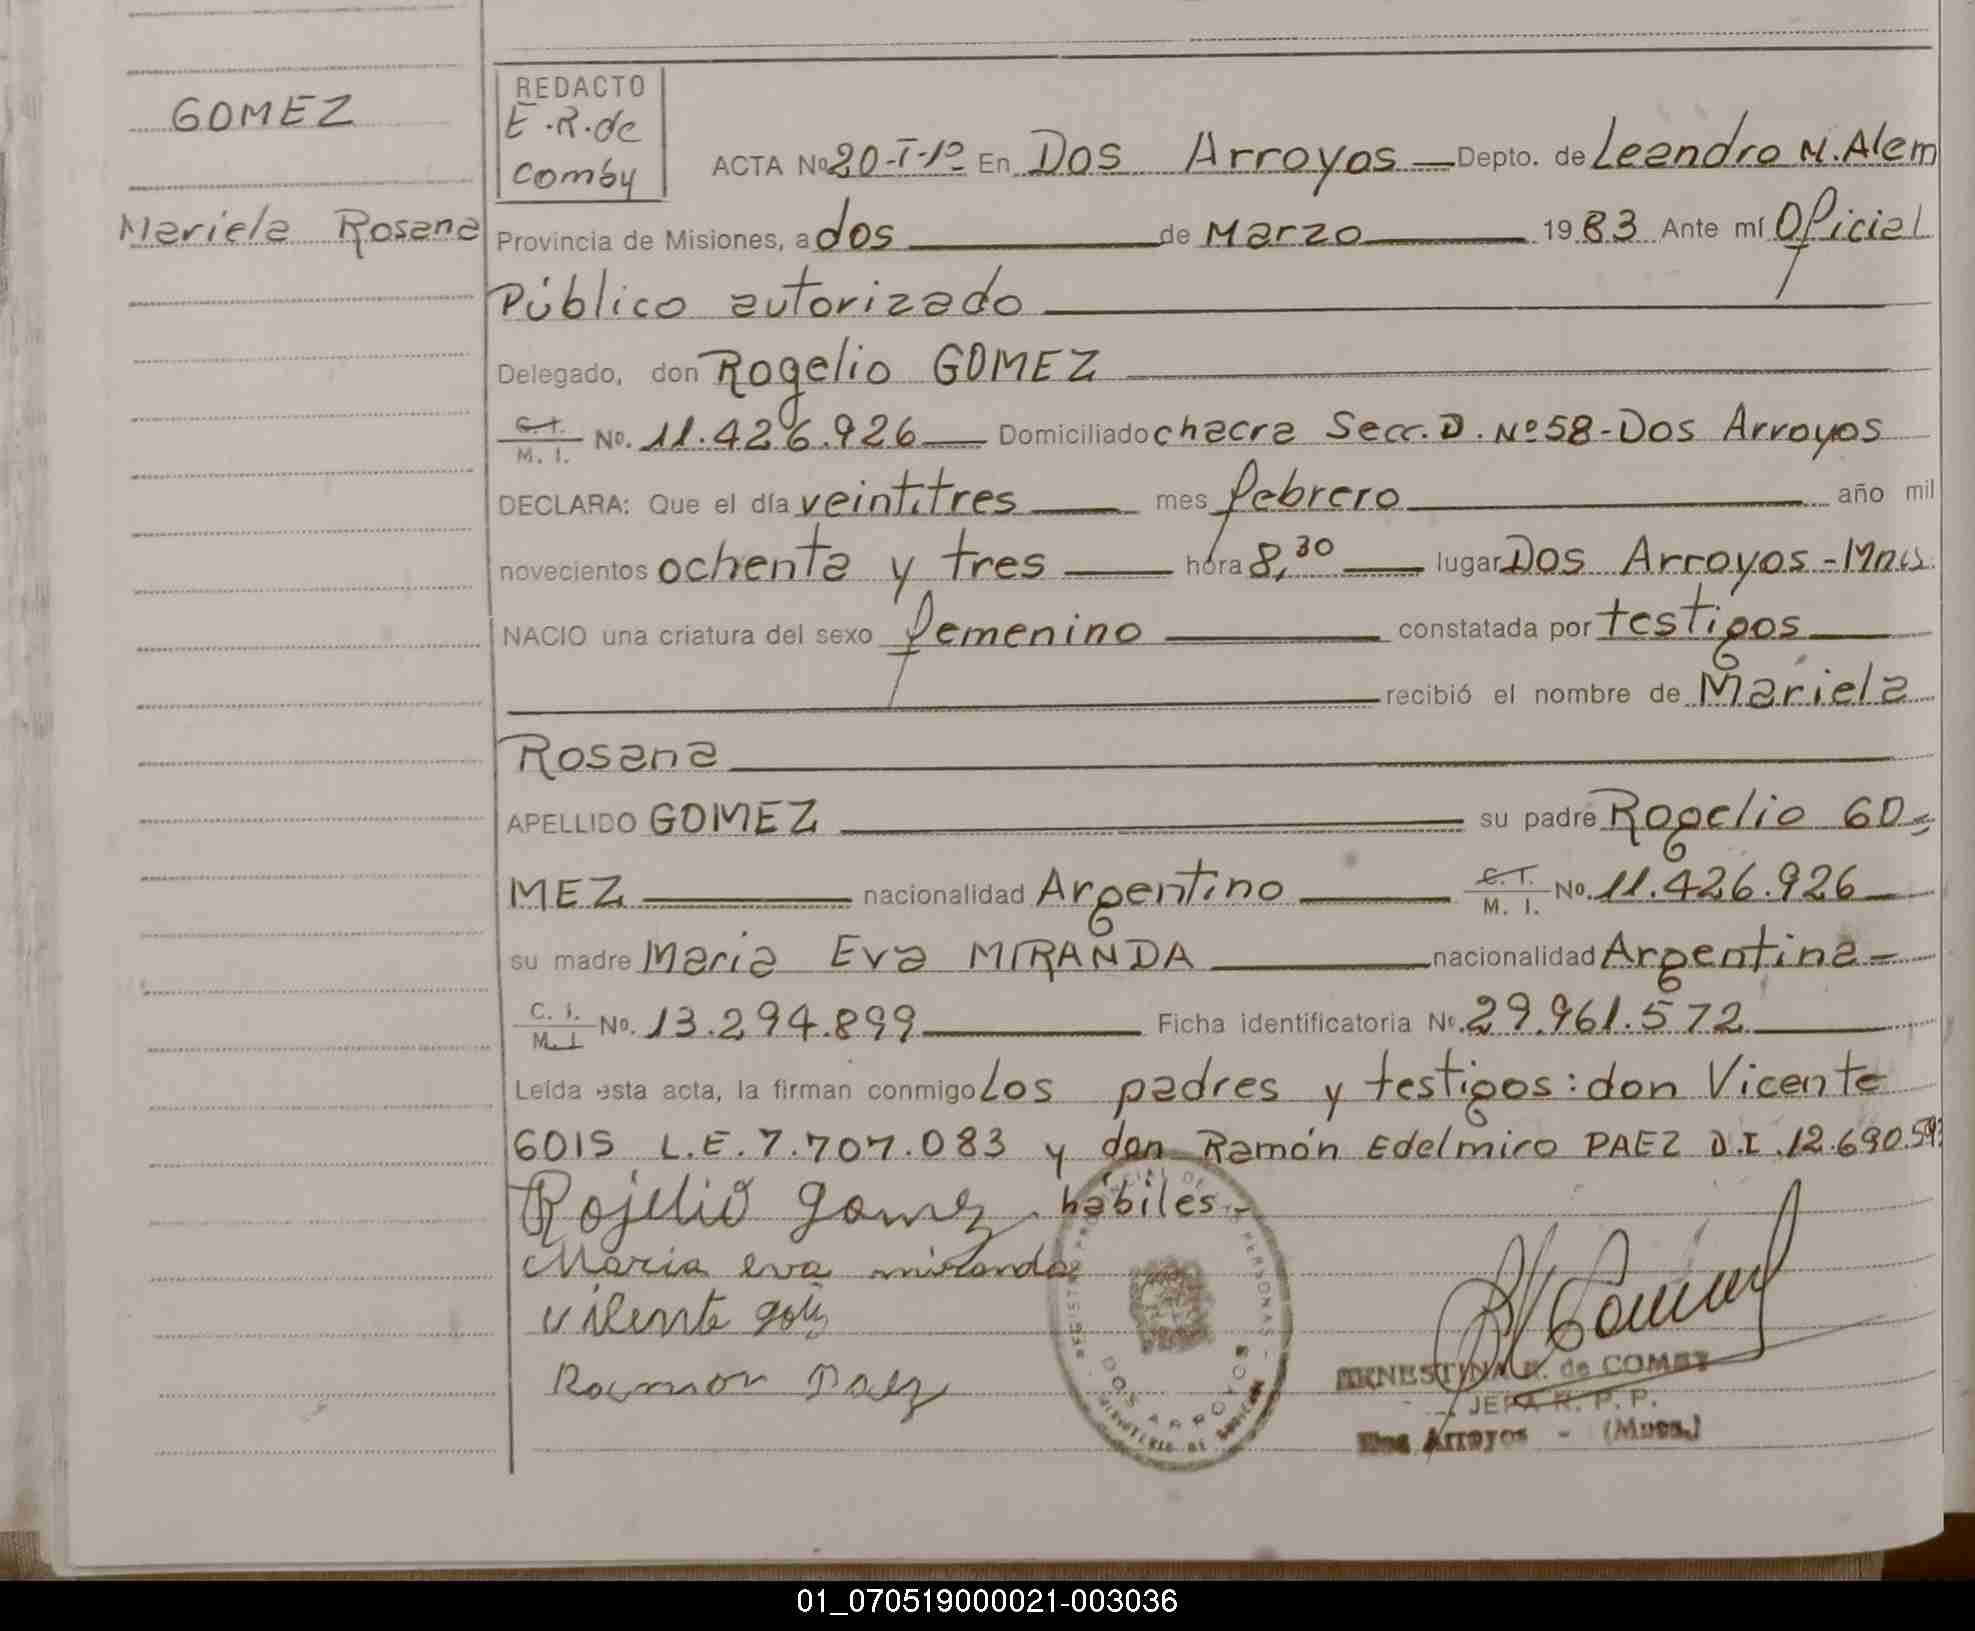 GOMEZ
Mariela Rosana
REDACTO
E.R.de
Comby
ACTA No 20-T-1º En Dos Arroyos Depto. de Leandro N. Alem
Provincia de Misiones, a dos de Marzo 1983 Ante mí Oficial
Público autorizado
Delegado, don Rogelio GOMEZ
C.I. M. I. No. 11.426.926 Domiciliado chacra Secc. D. Nº 58-Dos Arroyos
DECLARA: Que el día veintitres mes febrero año mil
novecientos ochenta y tres hora 8,30 lugar Dos Arroyos - Mnes.
NACIO una criatura del sexo femenino constatada por testigos
recibió el nombre de Mariela
Rosana
APELLIDO GOMEZ su padre Rogelio GO=
MEZ nacionalidad Argentino C.I. M. I. No. 11.426.926
su madre Maria Eva MIRANDA nacionalidad Argentina
C. I. M. I. No. 13.294.899 Ficha identificatoria No. 29.961.572
Leída esta acta, la firman conmigo Los padres y testigos: don Vicente
GOIS L.E. 7.707.083 y don Ramón Edelmiro PAEZ D.I. 12.690.593
hábiles.-
Rojelio gomez
Maria eva miranda
Vicente gois
Ramon Paez
REGISTRO PROVINCIAL DE LAS PERSONAS
DOS ARROYOS
MINISTERIO DE
ERNESTINA R. de COMBY
JEFA R. P. P.
Dos Arroyos - (Mnes.)
01_070519000021-003036